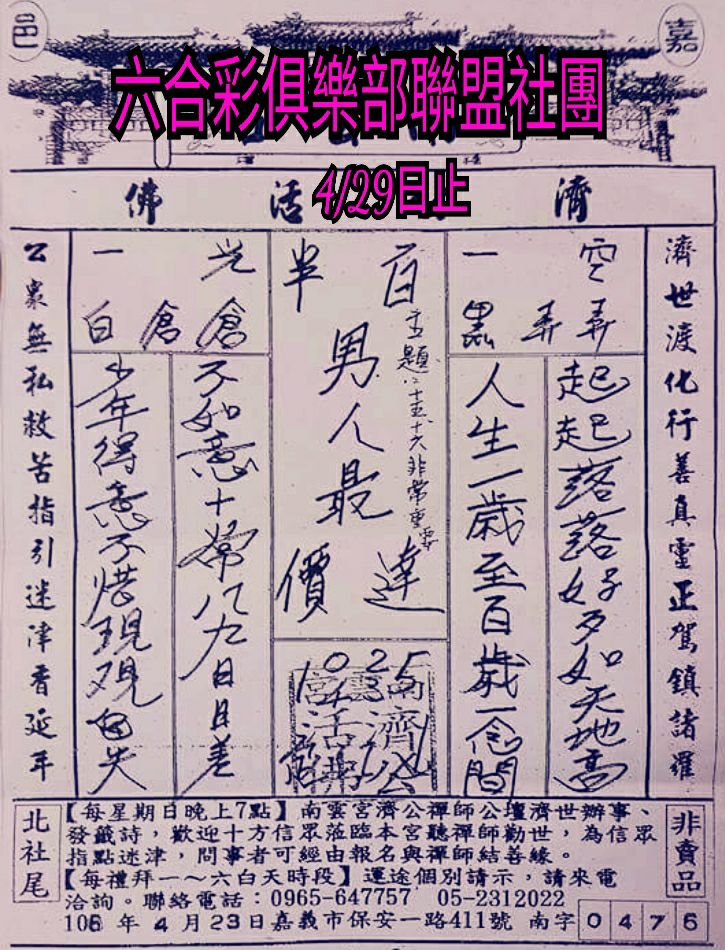 嘉邑
六合彩俱樂部聯盟社團
4/29日止
濟活佛
濟世渡化行善真靈正駕鎮諸羅
空一
弄弄黑
起起落落好歹如天地高
人生一歲至百歲一念間
百半
主題二十五十六非常重要
男人最
達價
光一
倉倉白
不如意十常八九日日差
少年得意不惜現
公眾無私救苦指引迷津香延年
北社尾
【每星期日晚上7點】南雲宮濟公禪師公壇濟世辦事、
發籤詩，歡迎十方信眾蒞臨本宮聽禪師勸世，為信眾
指點迷津，問事者可經由報名與禪師結善緣。
【每禮拜一～六白天時段】運途個別請示，請來電
洽詢。聯絡電話：0965-647757 05-2312022
106 年 4 月 23 日嘉義市保安一路411號 南字 0476
非賣品